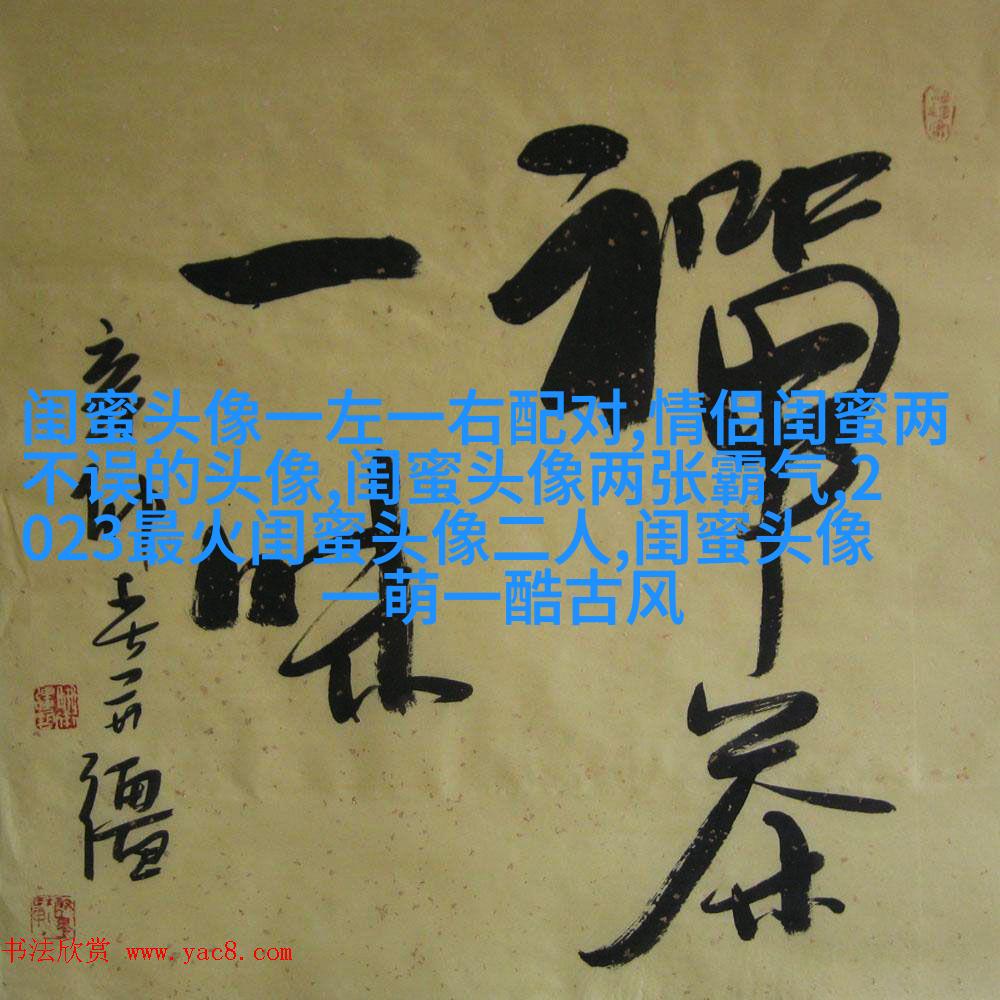 禪茶
一味
闺蜜头像一左一右配对,情侣闺蜜两
不误的头像,闺蜜头像两张霸气,2
023最火闺蜜头像二人,闺蜜头像
一萌一酷古风
书法欣赏 www.yac8.com